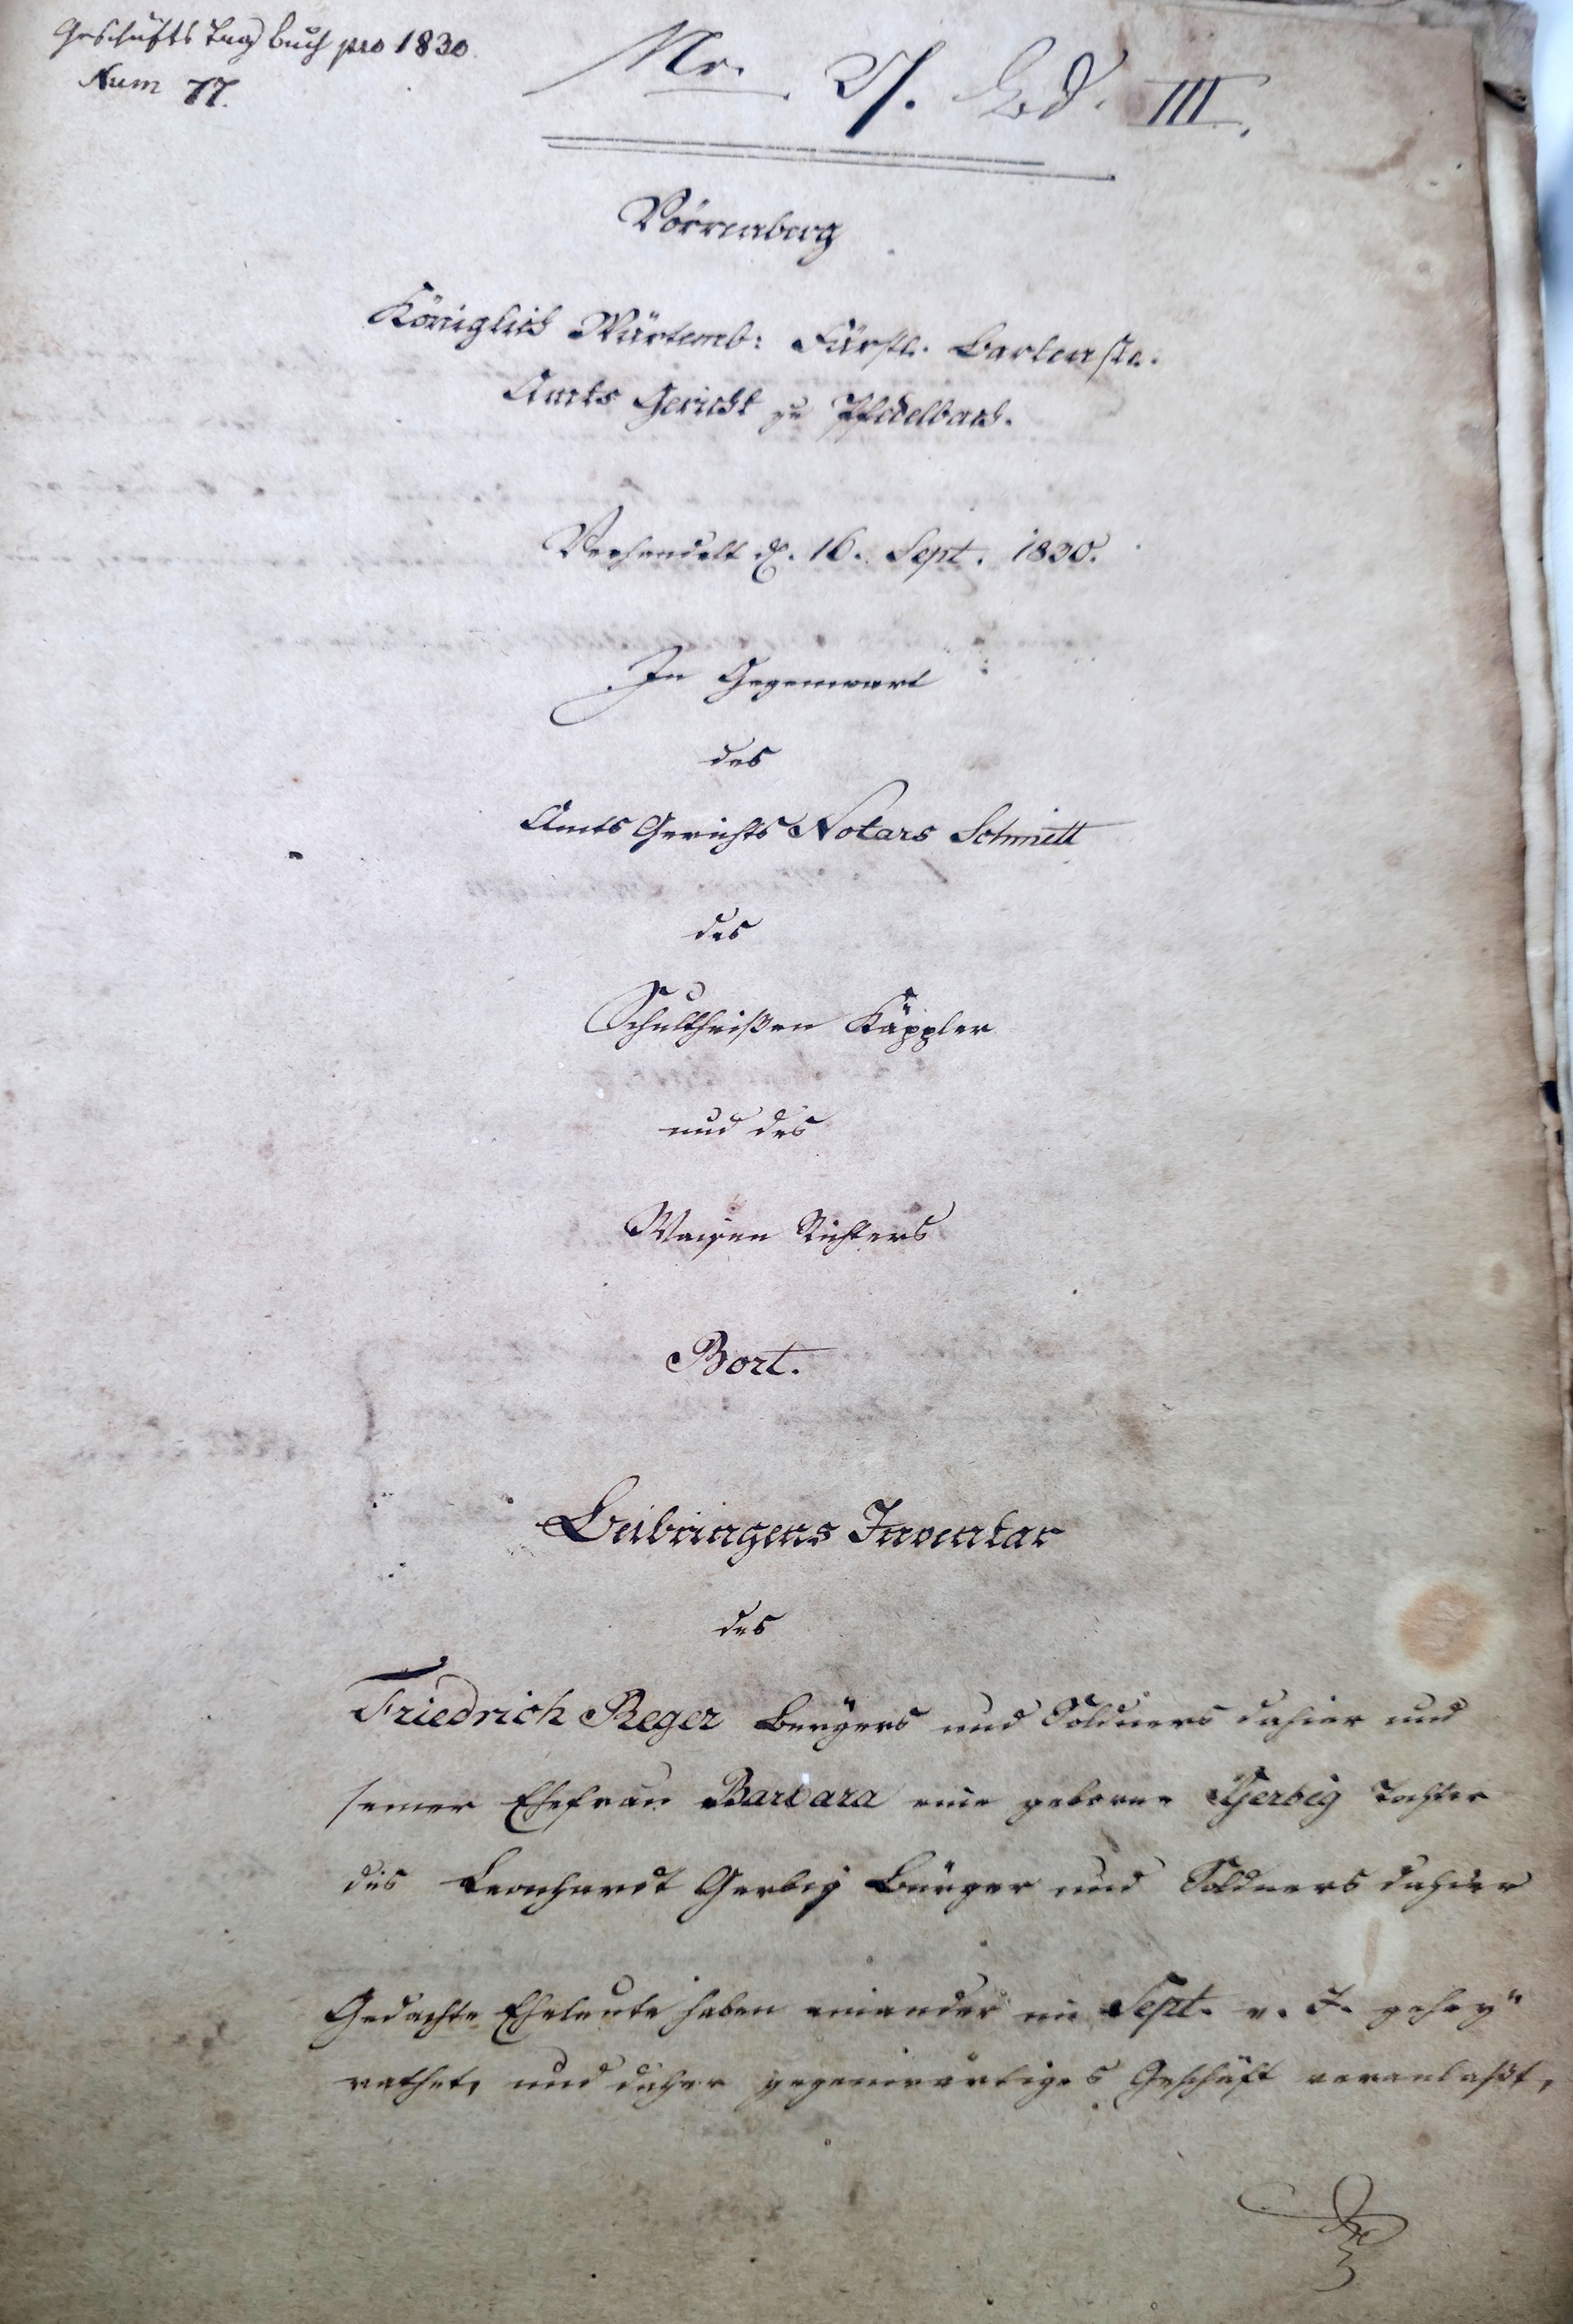 Geschäfts Tag buch pro 1830.
Num 77.
Nr. 27. Bd. III.
Dörrenberg
Königlich Würtemb: Fürstl. Bartenste.
Amts Gericht zu Pfedelbach.
Verhandelt d. 16. Sept. 1830.
In Gegenwart
des
Amts Gerichts Notars Schmitt
des
Schultheißen Käppler
und des
Waisen Richters
Bort.
Beibringens Inventar
des
Friedrich Reger Bürgers und Söldners dahier und
seiner Ehefrau Barbara eine geborne Gerbig Tochter
des Leonhardt Gerbig Bürger und Söldners dahier
Gedachte Eheleute haben einander im Sept. v. J. gehey"
rathet, und daher gegenwärtiges Geschäft veranlaßt,